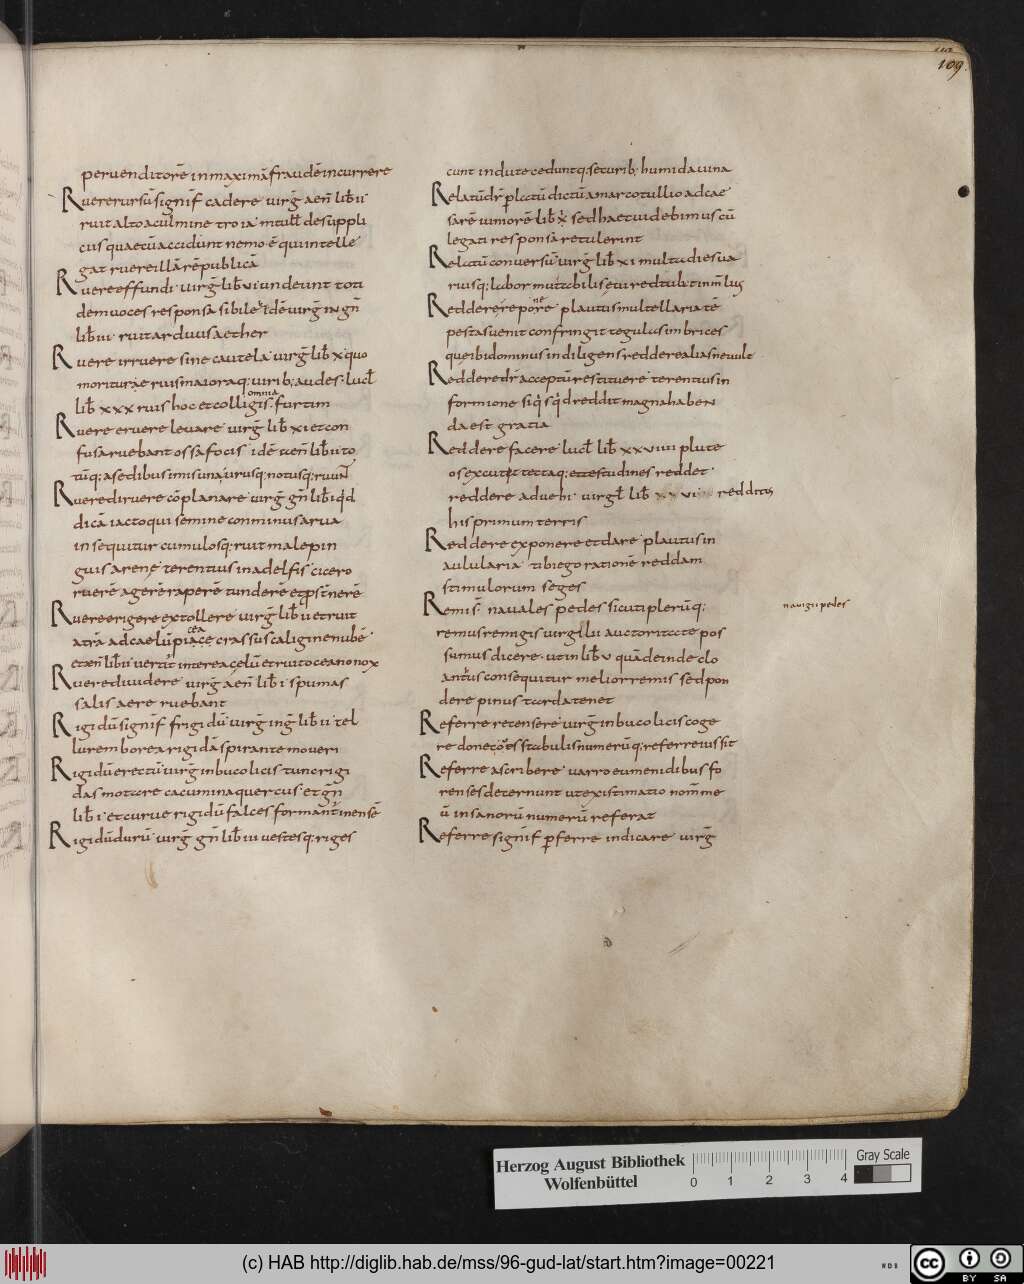 109
peruenditorē inmaximā fraudē incurrere
Ruerersursū signif̄ cadere uirḡ aen̄ lib̄ ii
ruit alto aculmine troia mtull̄ desuppli
ciis quaecūaccidunt nemo ē quiintelle
gat ruere illā rēpublicā
Ruere effundi uirḡ lib̄ vi undeunt toti
demuoces responsa sibile idē uirḡ in gn̄
lib̄ iii ruit arduus aether
Ruere irruere sine cautela uirḡ lib̄ x quo
moriturae ruis maioraq; uirib; audes lucl̄
lib̄ xxx ruis hoc et colligis omnia furtim
Ruere eruere leuare uirḡ lib̄ xi etcon
fusa ruebant ossa focis idē aen̄ lib̄ i uto
tūq; a sedibus imis una eurusq; notusq; ruunt
Ruere diruere cōplanare uirḡ gn̄ lib̄ i qd
dicā iacto qui semine comminus arua
insequitur cumulosq; ruit male pin
guis arenę terentius in adelfis cicero
ruerē agerē raperē tunderē et pst̄nerē
Ruere erigere extollere uirḡ lib̄ ii et ruit
atrā adcaelū piāce cea crassus caligine nubē
et aen̄ lib̄ ii uertit interea celū et ruit oceano nox
Ruere diuidere uirḡ aen̄ lib̄ i spumas
salis aere ruebant
Rigidū signif̄ frigidū uirḡ in g̅ lib̄ ii tel
lurem borea rigidā spirante moueri
Rigidū erectū uirḡ inbucolicis tunc rigi
das motare cacumina quercus et gn̄
lib̄ i et curue rigidū falces formant inensē
Rigidū durū uirḡ gn̄ lib̄ iii uestesq; riges
cunt indute ceduntq; securib; humida uina
Relatū dr̄ plcctū dictū a marco tullio ad cae
sarē uimorē lib̄ x sed haec uidebimus cū
legati responsa retulerint
Relatū conuersū uirḡ lib̄ xi multa dies ua
riusq; labor mutabilis eui redtulit inm̄lus
Reddere rēponere plautus multellaria tē
pestas uenit confringit tegulas imbrices
que ibi dominus indiligens reddere alias neuule
Reddere dr̄ acceptū restituere terentius in
formione siq̇s q̇d reddit magna haben
da est gratia
Reddere facere lucl̄ lib̄ xxviiii plute
os excutit tectaq; et testudines reddet
reddere aduehi uirgl̄ lib̄ redditus
his primum terris
Reddere exponere et dare plautus in
aulularia tibi ego rationē reddam
stimulorum seges
Remis naualespedes sicuti plerūq;
remus remigis uirgilii auctoritate pos
sumus dicere ut in lib̄ v quā deinde clo
anthus consequitur melior remis sed pon
dere pinus tarda tenet
nauigii pedes
Referre recensere uirḡ in bucolicis coge
re donec oues stabulis numerūq; referre iussit
Referre ascribere uarro eumenidibus fo
renses decernunt ut existimatio nom̄ me
ū insanorū numerū referat
Referre signif̄ pferre indicare uirḡ
Herzog August Bibliothek
Wolfenbüttel
0 1 2 3 4
Gray Scale
(c) HAB http://diglib.hab.de/mss/96-gud-lat/start.htm?image=00221
WDB
cc
BY SA